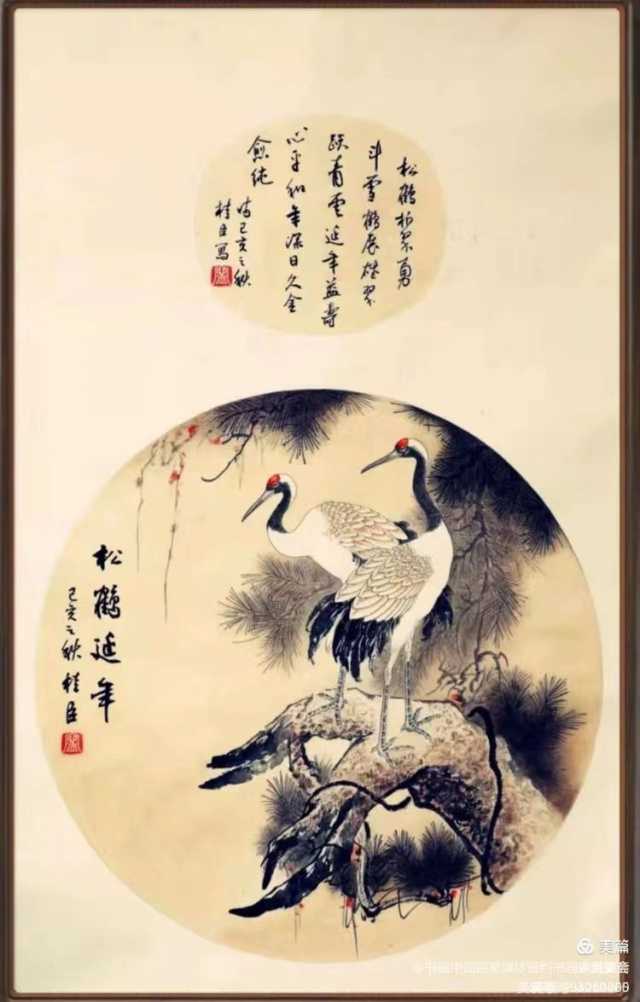 松鹤相邻勇
斗雪鹤展雄翠
跃青云延年益寿
心平和年深日久全
俞纯
时己亥之秋
桂臣写
松鹤延年
己亥之秋桂臣
美篇